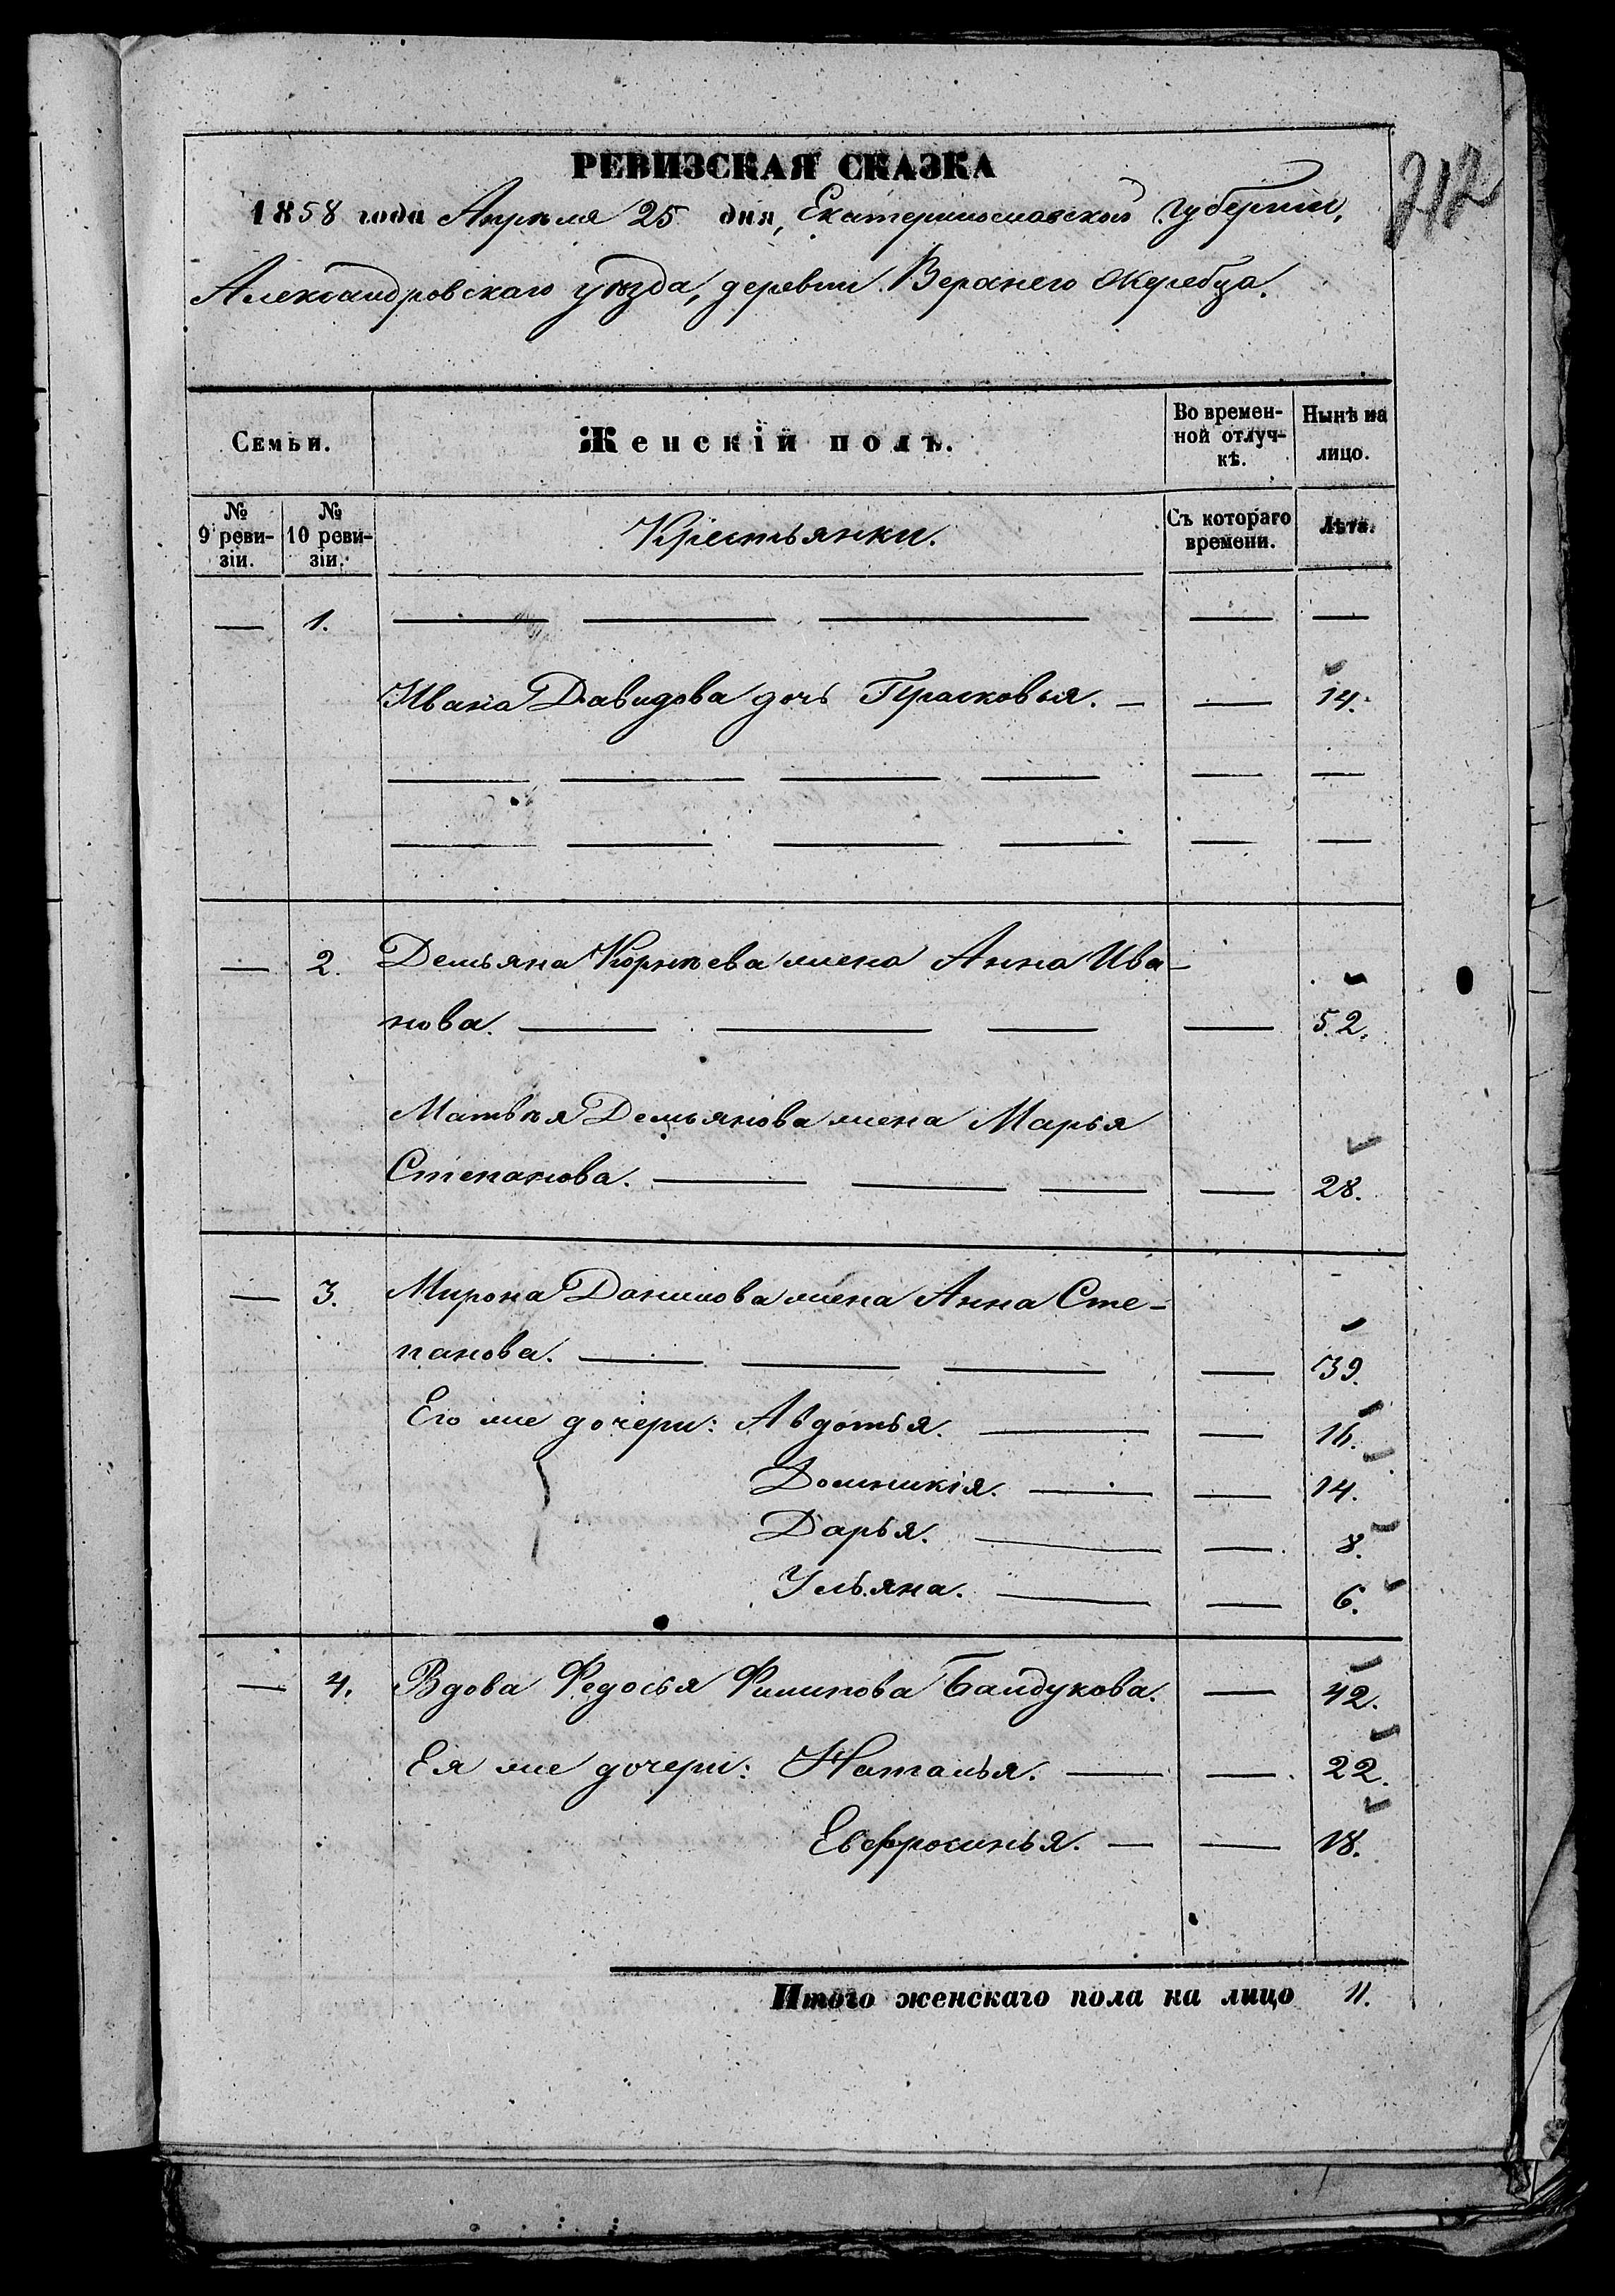 РЕВИЗСКАЯ СКАЗКА
212
1858 года Апрѣля 25 дня, Екатеринославской Губерніи,
Александровскаго уѣзда, деревни Верхнего Жеребца.
Семьи.
Женскій полъ.
Во времен-
ной отлуч-
кѣ.
Нынѣ на
лицо.
№
9 реви-
зіи.
№
10 реви-
зіи.
Крестьянки.
Съ котораго
времени.
Лѣта.
— 1. — — — — —
Ивана Давидова дочь Прасковья. — — 14.
— — — — — —
— — — — — —
— 2. Демьяна Корнѣева жена Анна Ива-
нова. — — — — 52.
Матвѣя Демьянова жена Марья
Степанова. — — — — 28.
— 3. Мирона Данилова жена Анна Сте-
панова. — — — — 39.
Его же дочери: Авдотья. — — 16.
Домникія. — — 14.
Дарья. — — 8.
Ульяна. — — 6.
— 4. Вдова Федосья Филипова Байдукова. — 42.
Ея же дочери: Наталья. — — 22.
Евфросинья. — — 18.
Итого женскаго пола на лицо 11.